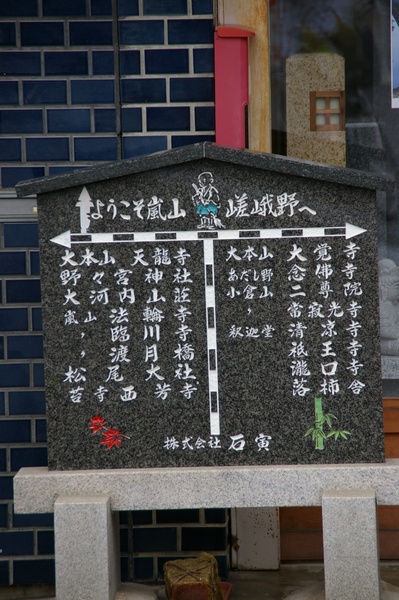 ようこそ嵐山 嵯峨野へ
大本山 天龍寺
野々宮神社
大河内山荘
嵐山法輪寺
〃 〃 臨川寺
〃 渡月橋
松尾大社
苔寺 西芳寺
大本山 大覚寺
あだし野念佛寺
小倉山二尊院
〃 常寂光寺
釈迦堂清凉寺
祇王寺
瀧口寺
落柿舎
株式会社 石寅